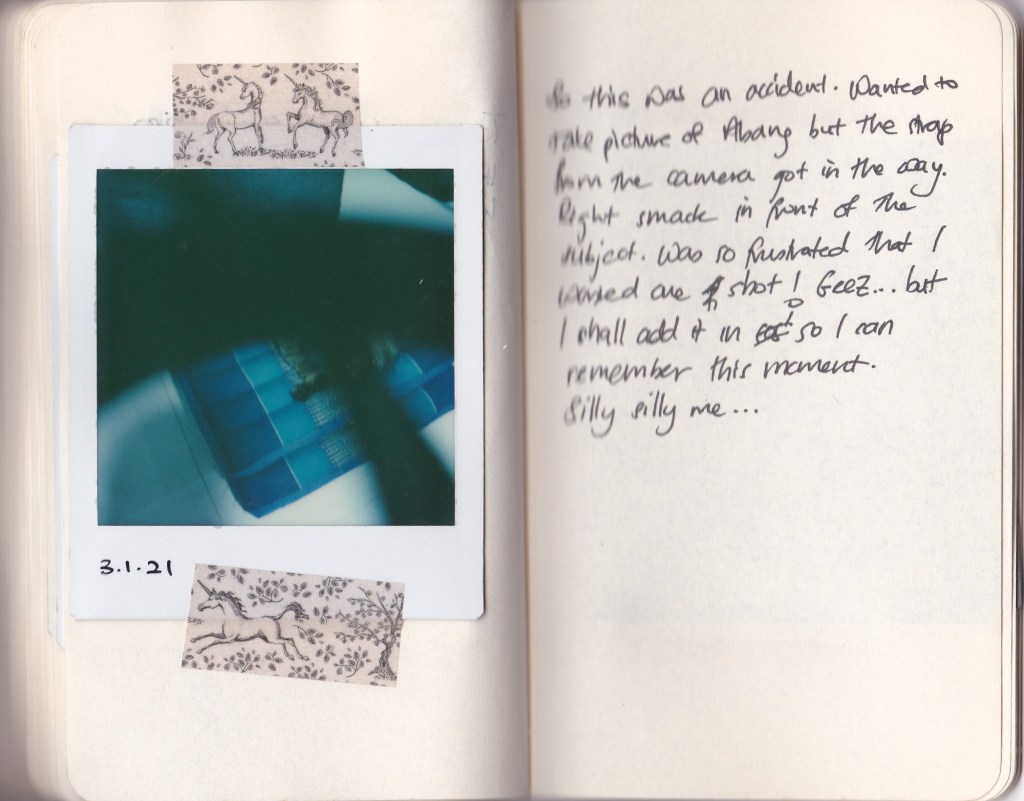 3.1.21
So this was an accident. Wanted to
take picture of Abang but the strap
from the camera got in the way.
Right smack in front of the
subject. Was so frustrated that I
wasted one shot! Geez... but
I shall add it in so I can
remember this moment.
Silly silly me...